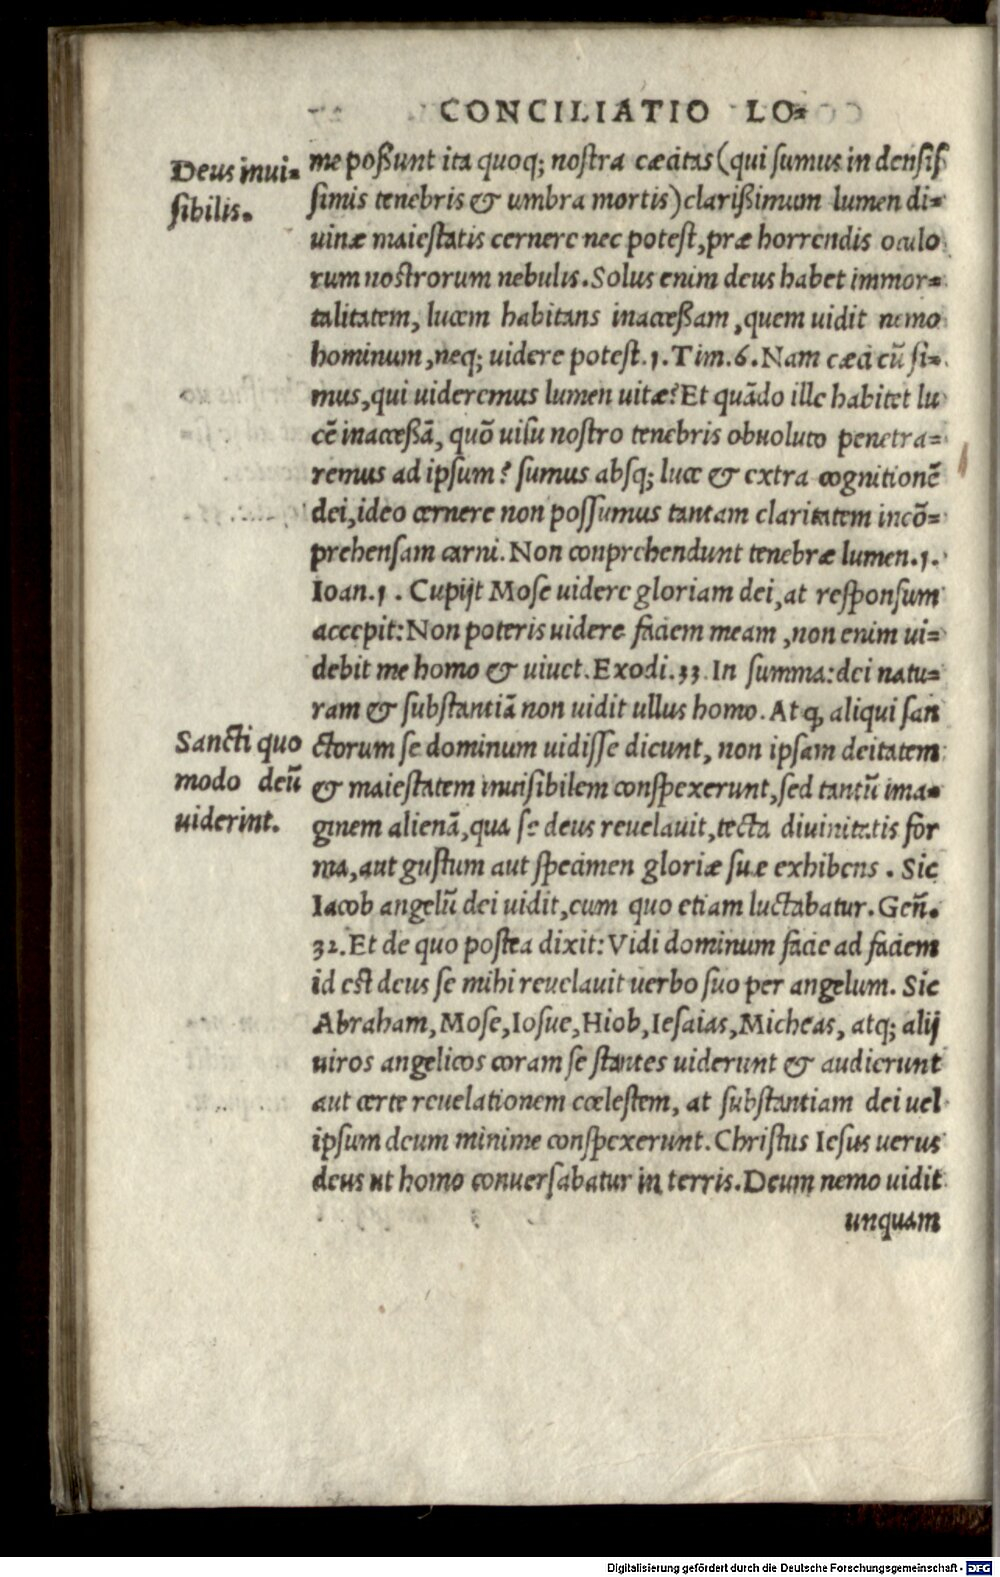 CONCILIATIO LO=
Deus inui=
sibilis.
me poßunt ita quoq; nostra cæcitas (qui sumus in densis
simis tenebris & umbra mortis) clarißimum lumen di=
uinæ maiestatis cernere nec potest, præ horrendis oculo
rum nostrorum nebulis. Solus enim deus habet immor=
talitatem, lucem habitans inacceßam, quem uidit nemo
hominum, neq; uidere potest. 1. Tim. 6. Nam cæci cũ si=
mus, qui uideremus lumen uitæ? Et quãdo ille habitet lu
cẽ inacceßã, quõ uisu nostro tenebris obuoluto penetra=
remus ad ipsum? sumus absq; luce & extra cognitionẽ
dei, ideo cernere non possumus tantam claritatem incõ=
prehensam carni. Non conprehendunt tenebræ lumen. 1.
Ioan. 1. Cupijt Mose uidere gloriam dei, at responsum
accepit: Non poteris uidere faciem meam, non enim ui=
debit me homo & uiuet. Exodi. 33. In summa: dei natu=
ram & substantiã non uidit ullus homo. At ꝙ aliqui san
Sancti quo
modo deũ
uiderint.
ctorum se dominum uidisse dicunt, non ipsam deitatem
& maiestatem inuisibilem conspexerunt, sed tantũ ima=
ginem alienã, qua se deus reuelauit, tecta diuinitatis for
ma, aut gustum aut specimen gloriæ suæ exhibens. Sic
Iacob angelũ dei uidit, cum quo etiam luctabatur. Geñ.
32. Et de quo postea dixit: Vidi dominum facie ad faciem
id est deus se mihi reuelauit uerbo suo per angelum. Sic
Abraham, Mose, Iosue, Hiob, Iesaias, Micheas, atq; alij
uiros angelicos coram se stantes uiderunt & audierunt
aut certe reuelationem cœlestem, at substantiam dei uel
ipsum deum minime conspexerunt. Christus Iesus uerus
deus ut homo conuersabatur in terris. Deum nemo uidit
unquam
Digitalisierung gefördert durch die Deutsche Forschungsgemeinschaft - DFG